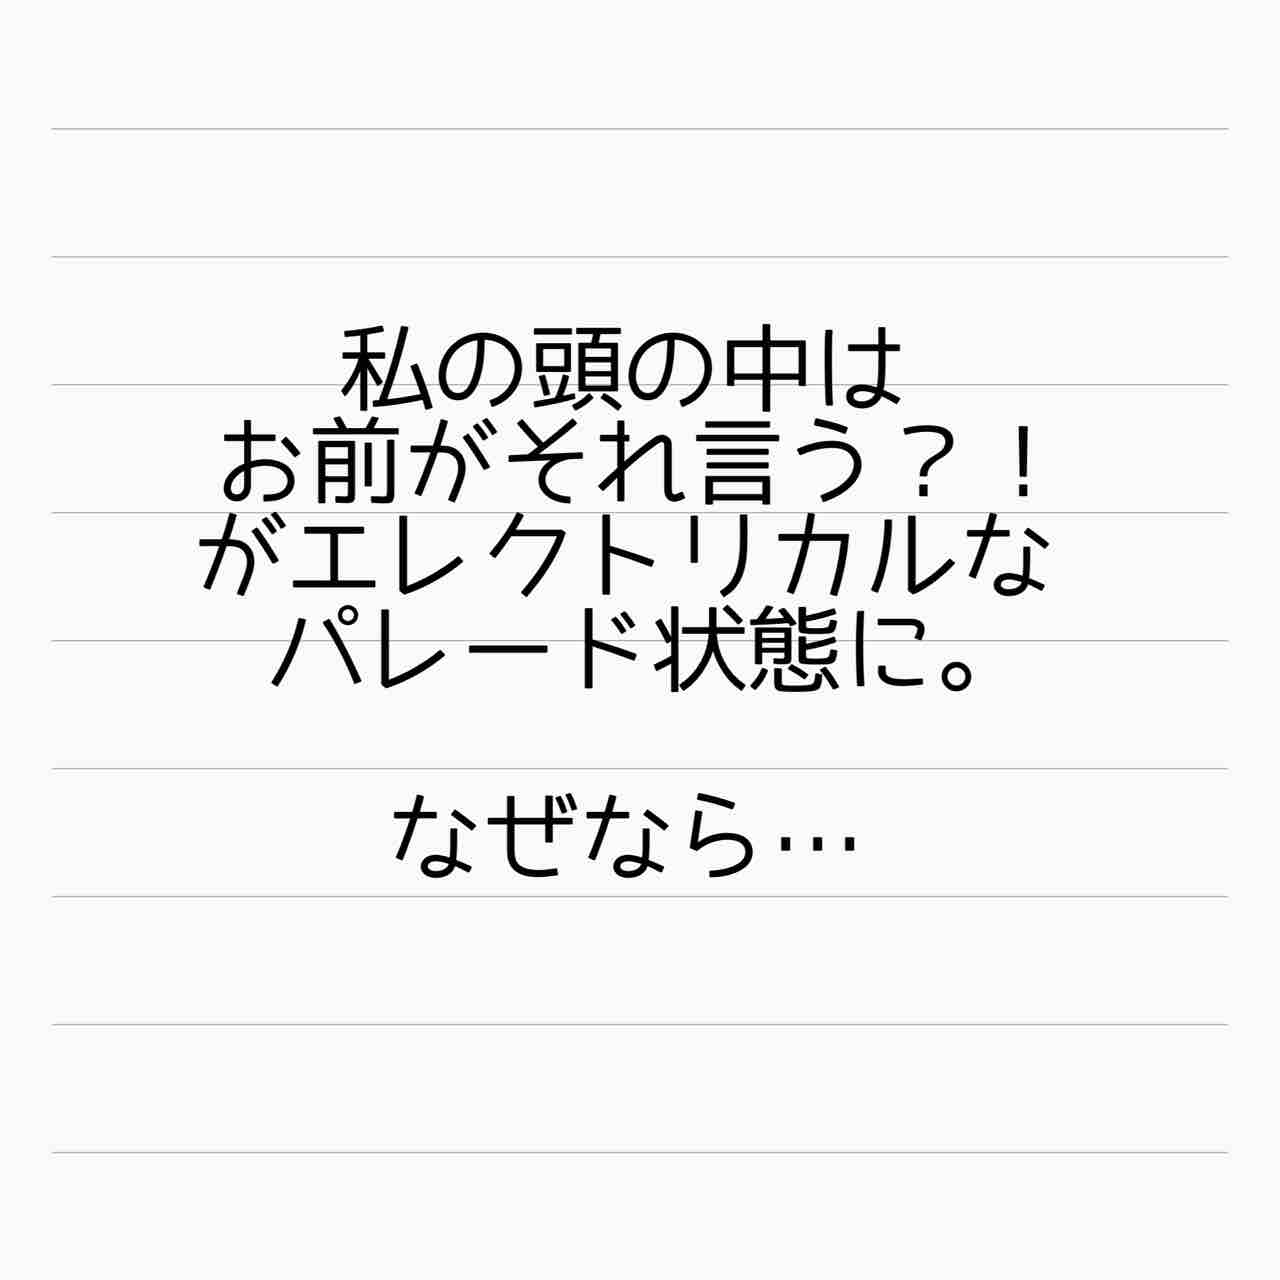 私の頭の中は
お前がそれ言う？！
がエレクトリカルな
パレード状態に。
なぜなら…